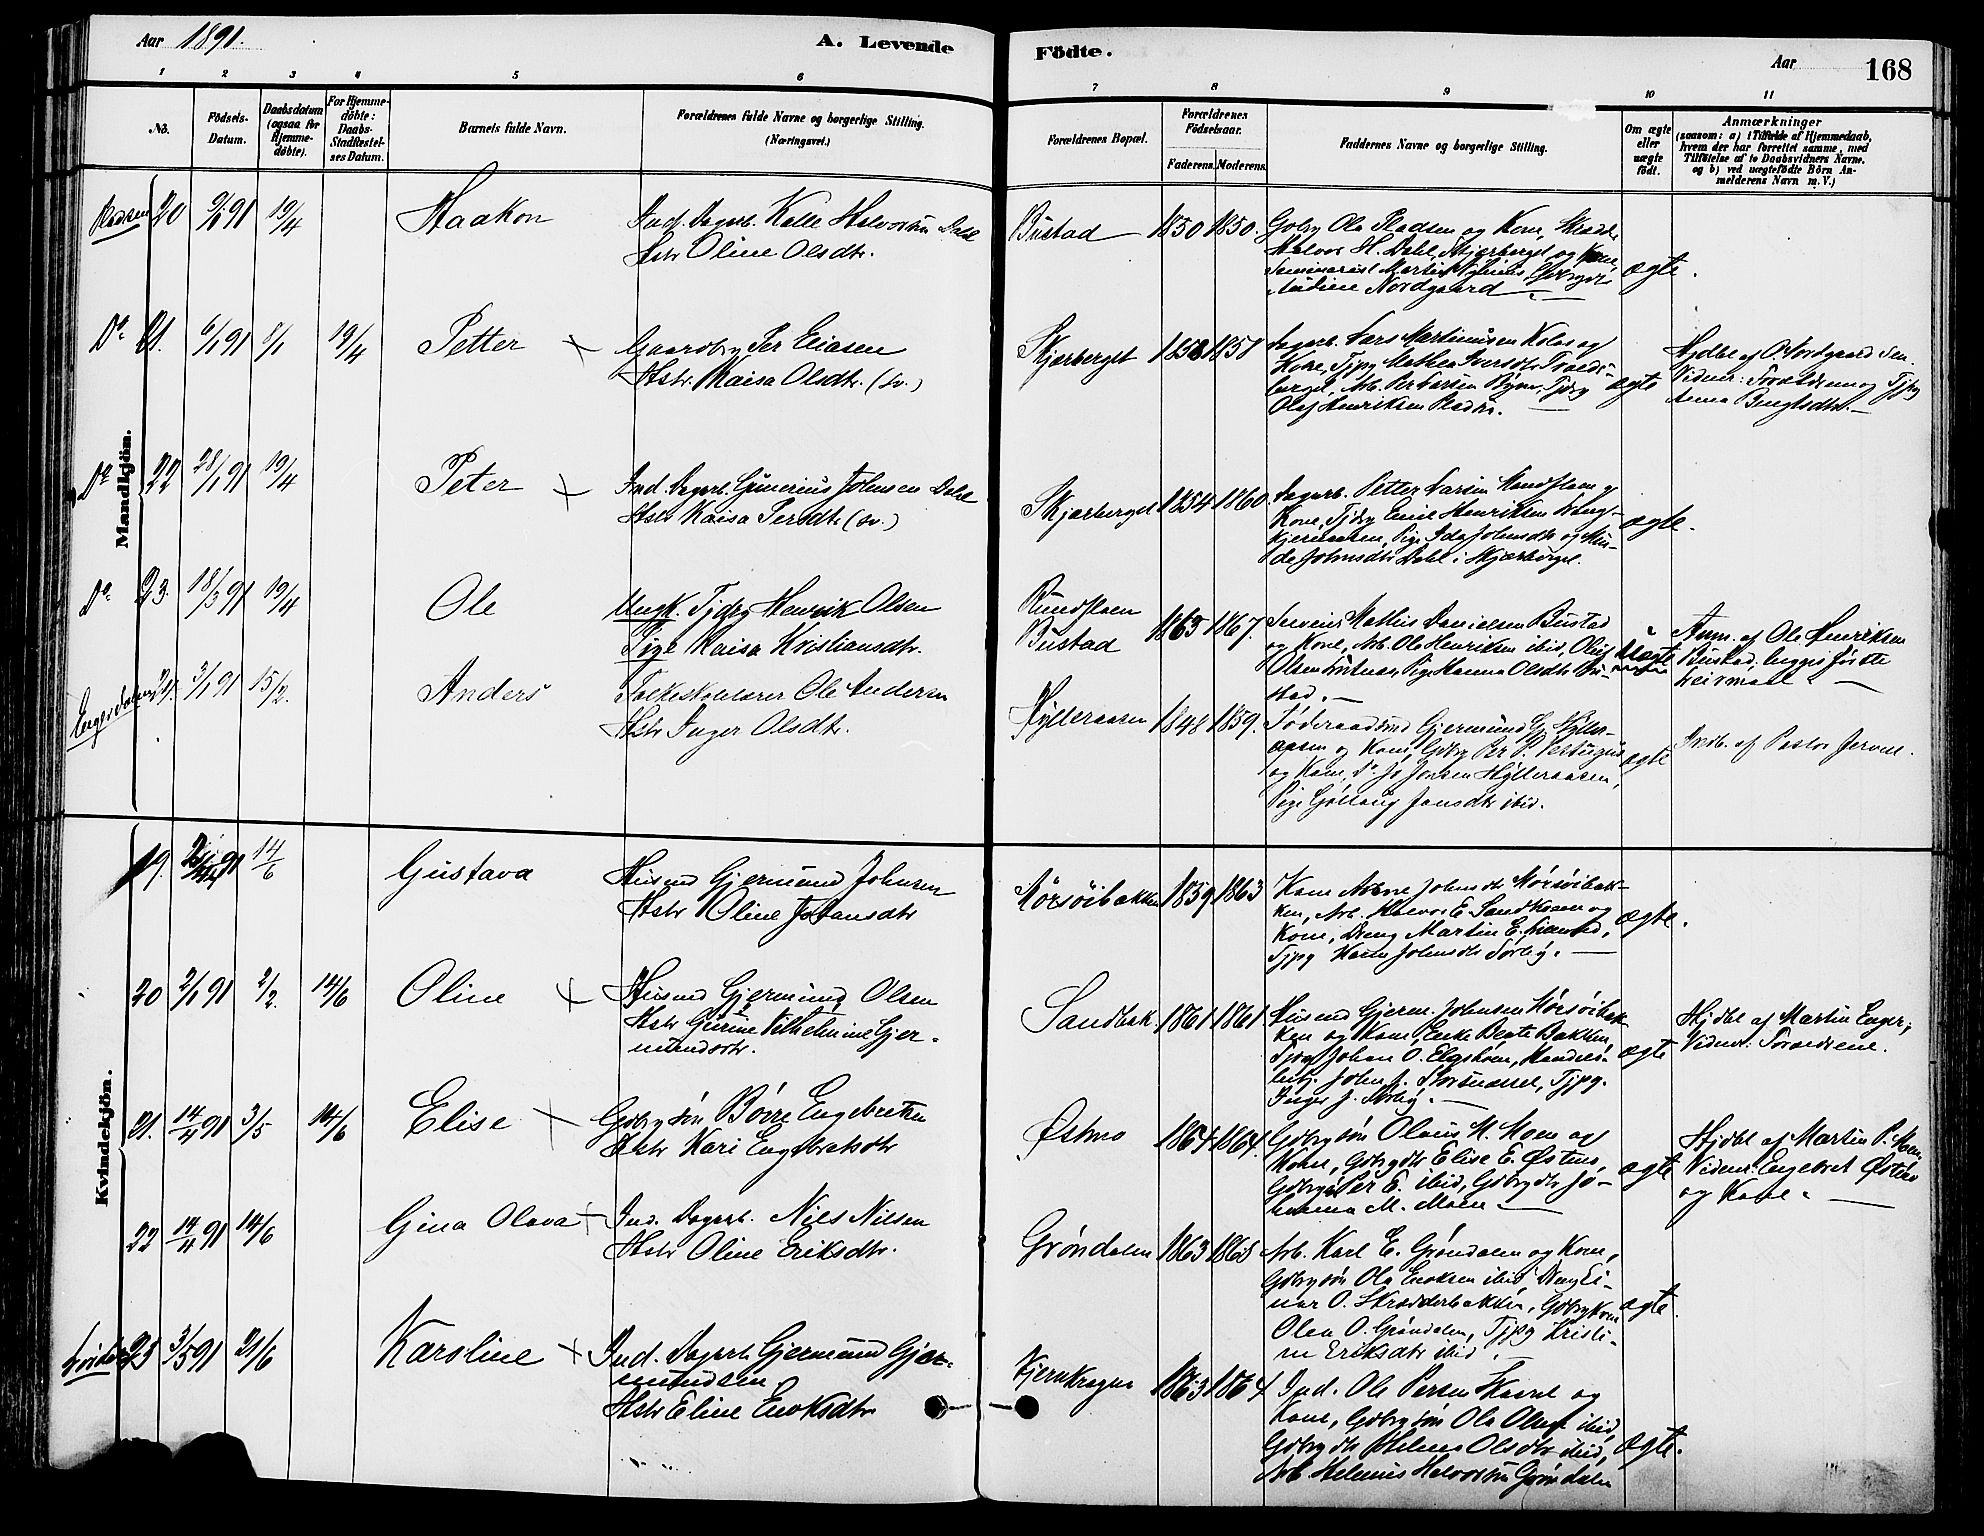 Aar 1891.
A. Levende
Födte.
Aar
168
1 2 3 4 5 6 7 8 9 10 11
No.
Födsels-
Datum.
Daabsdatum
(ogsaa for
Hjemme-
döbte).
For Hjemme-
döbte:
Daabs-
Stadfæstel-
ses Datum.
Barnets fulde Navn.
Forældrenes fulde Navne og borgerlige Stilling.
(Næringsvei.)
Forældrenes Bopæl.
Forældrenes
Födselsaar.
Faderens. Moderens.
Faddernes Navne og borgerlige Stilling.
Om ægte
eller
uægte
födt.
Anmærkninger
(saasom: a) i Tilfælde af Hjemmedaab,
hvem der har forrettet samme, med
Tilföielse af to Daabsvidners Navne.
og b) ved uægtefödte Börn An-
melderens Navn m. V.)
Mandkjön.
20 19/4
Haakon
Ind. Dagarb. Kelle Halvorsen Dahl
Hstr Oline Olsdtr.
Bustad 1850 1850.
Gbbr Ola Pladsen og Kone,
Halvor H. Dahl, Skjærberget og Kone,
Seminarist Martin
Nordgaard
ægte.
Do 21. 6/1 91 8/1 19/4
Petter
Gaardbr Per Eiasen
Hstr Kaisa Olsdtr. (sv.)
Skjærberget 1858 1858
Dagarb. Lars Martinusen Kolos og
Kone, Tjpg Mathea Iversdtr
Arb. Per Larsen
Olaf Henriksen
ægte
Hjdbt af O. Nordgaard Sen.
Vidner: Forældrene og Tjpg
Anna Bengtsdtr.
Do 22 28/1 91 19/4
Peter
Ind. Dagarb. Gunerius Johnsen Dahl
Hstr Kaisa Persdtr (sv.)
Skjærberget 1854 1860.
Dagarb. Petter Larsen og
Kone, Tjdrg Emil Henriksen
Pige Ida Johnsdtr og
Johnsdtr Dahl i Skjærberget.
ægte.
Do 23. 18/3 91 19/4
Ole
Ungk. Tjdrg Henrik Olsen
Pige Kaisa Kristiansdtr.
Rundfloen
Bustad
1865 1867.
Mathis Danielsen Bustad
og Kone, Arb. Ole Henriksen ibid, Oluf
Olsen Pige Hanna Olsdtr Bu-
stad.
uægte
Anm. af Ole Henriksen
Bustad, begges første
Leiermaal
3/1 91 15/2.
Anders
Folkeskolelærer Ole Andersen
Hstr Inger Olsdtr.
Hylleraasen 1848 1859.
Føderaadsmd Gjermund G. Hyller-
aasen og Kone, Gbbr Per P.
og Kone, Do Jo Jonsen Hylleraasen,
Pige Gøllaug Jonsdtr ibid.
ægte
Indb. af Pastor Jervell.
Kvindekjön.
19. 14/6
Gustava
Husmd Gjermund Johnsen
Hstr Oline Johansdtr
Mørsøibakken 1859 1863
Kone Johnsdtr Mørsøibak-
ken, Arb. Halvor E. Sandkroen og
Kone, Dreng Martin E.
Tjpg Karen Johnsdtr Sørby.
ægte.
20 2/1 91 2/2. 14/6
Oline
Husmd Gjermund Olsen
Hstr Gurine Vilhelmine Gjer-
mundsdtr.
Sandbak 1861 1861
Husmd Gjerm. Johnsen Mørsøibak-
ken og Kone, Enke Beate Bakken,
Tjdrg Johan O. Elgshøen, Handels-
betj. John J. Tjpg.
Inger J. Sørby.
ægte
Hjdbt af Martin Enger,
Vidner: Forældrene.
21. 14/4 91 3/5 14/6
Elise
Gdbrgsøn Børre Engebretsen
Hstr Kari Engebretsdtr
Østmo 1864 1864.
Gdbrgsøn Olaus M. Moen og
Kone, Gdbrgdtr Elise E. Østmo,
Gdbrgsøn Per E. ibid, Gdbrgdtr Jo-
hanna M. Moen
ægte
Hjdbt af Martin P. Moen
Vidner: Engebret Østmo
og Kone.
22 14/4 91 14/6
Gina Olava
Ind. Dagarb. Nils Nilsen
Hstr Oline Eriksdtr.
Grøndalen 1863 1865
Arb. Karl E. Grøndalen og Kone,
Gdbrgsøn Ole Eriksen ibid, Dreng Ei-
nar O. Skrædderbakken, Gdbrgkone
Olea O. Grøndalen, Tjpg Kristi-
ne Eriksdtr ibid.
ægte.
23 3/5 91 21/6
Karoline
Ind. Dagarb. Gjermund Gjer-
mundsen
Hstr Eline Enoksdtr
Kjernkrogen 1863 1864
Ind. Ole Persen og
Kone, Gdbrgsøn Ole Olsen ibid,
Gdbrgdtr Helene Olsdtr ibid,
Arb. Helenius Halvorsen Grøndalen
ægte.